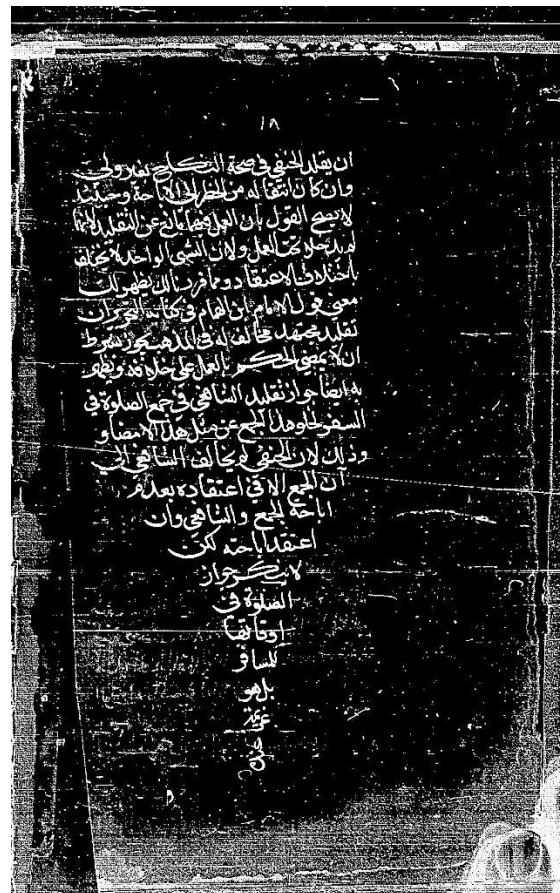 ١٨
ان يقلد الحنفي في صحة النكاح بغير ولي
وان كان انتقاله من الحظر الى الاباحة وحينئذ
لا يصح القول بان العمل فيهما مانع عن التقليد لانه
لم يدخله تحت العمل ولان الشي الواحد لا يختلف
باختلاف الاعتقاد ومما قررنا لك يظهر لك
معنى قول الامام ابن الهمام في كتابه التحرير ان
تقليد مجتهد مخالف له في المذهب يجوز بشرط
ان لا يمضي الحكم العمل على خلافه ويظهر
به ايضا جواز تقليد الشافعي في جمع الصلوة في
السفر لخلو هذا الجمع عن مثل هذا الامضاء
وذلك لان الحنفي لم يخالف الشافعي الى
آن الجمع الا في اعتقاده بعدم
اباحة الجمع والشافعي وان
اعتقد اباحته لكن
لا ينكر جواز
الصلوة في
اوقاتها
للمسافر
بل هو
عزيمة
عنده